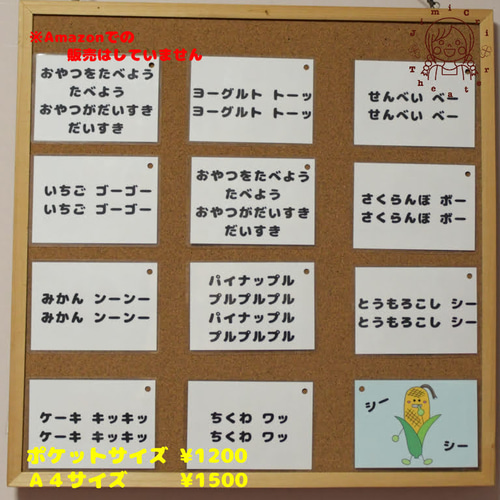 ※Amazonでの
販売はしていません
おやつをたべよう
たべよう
おやつがだいすき
だいすき
ヨーグルト トーッ
ヨーグルト トーッ
せんべい べー
せんべい べー
いちご ゴーゴー
いちご ゴーゴー
おやつをたべよう
たべよう
おやつがだいすき
だいすき
さくらんぼ ボー
さくらんぼ ボー
みかん ンーンー
みかん ンーンー
パイナップル
プルプルプル
パイナップル
プルプルプル
とうもろこし シー
とうもろこし シー
ケーキ キッキッ
ケーキ キッキッ
ちくわ ワッ
ちくわ ワッ
シー
シー
ポケットサイズ ¥1200
A4サイズ ¥1500